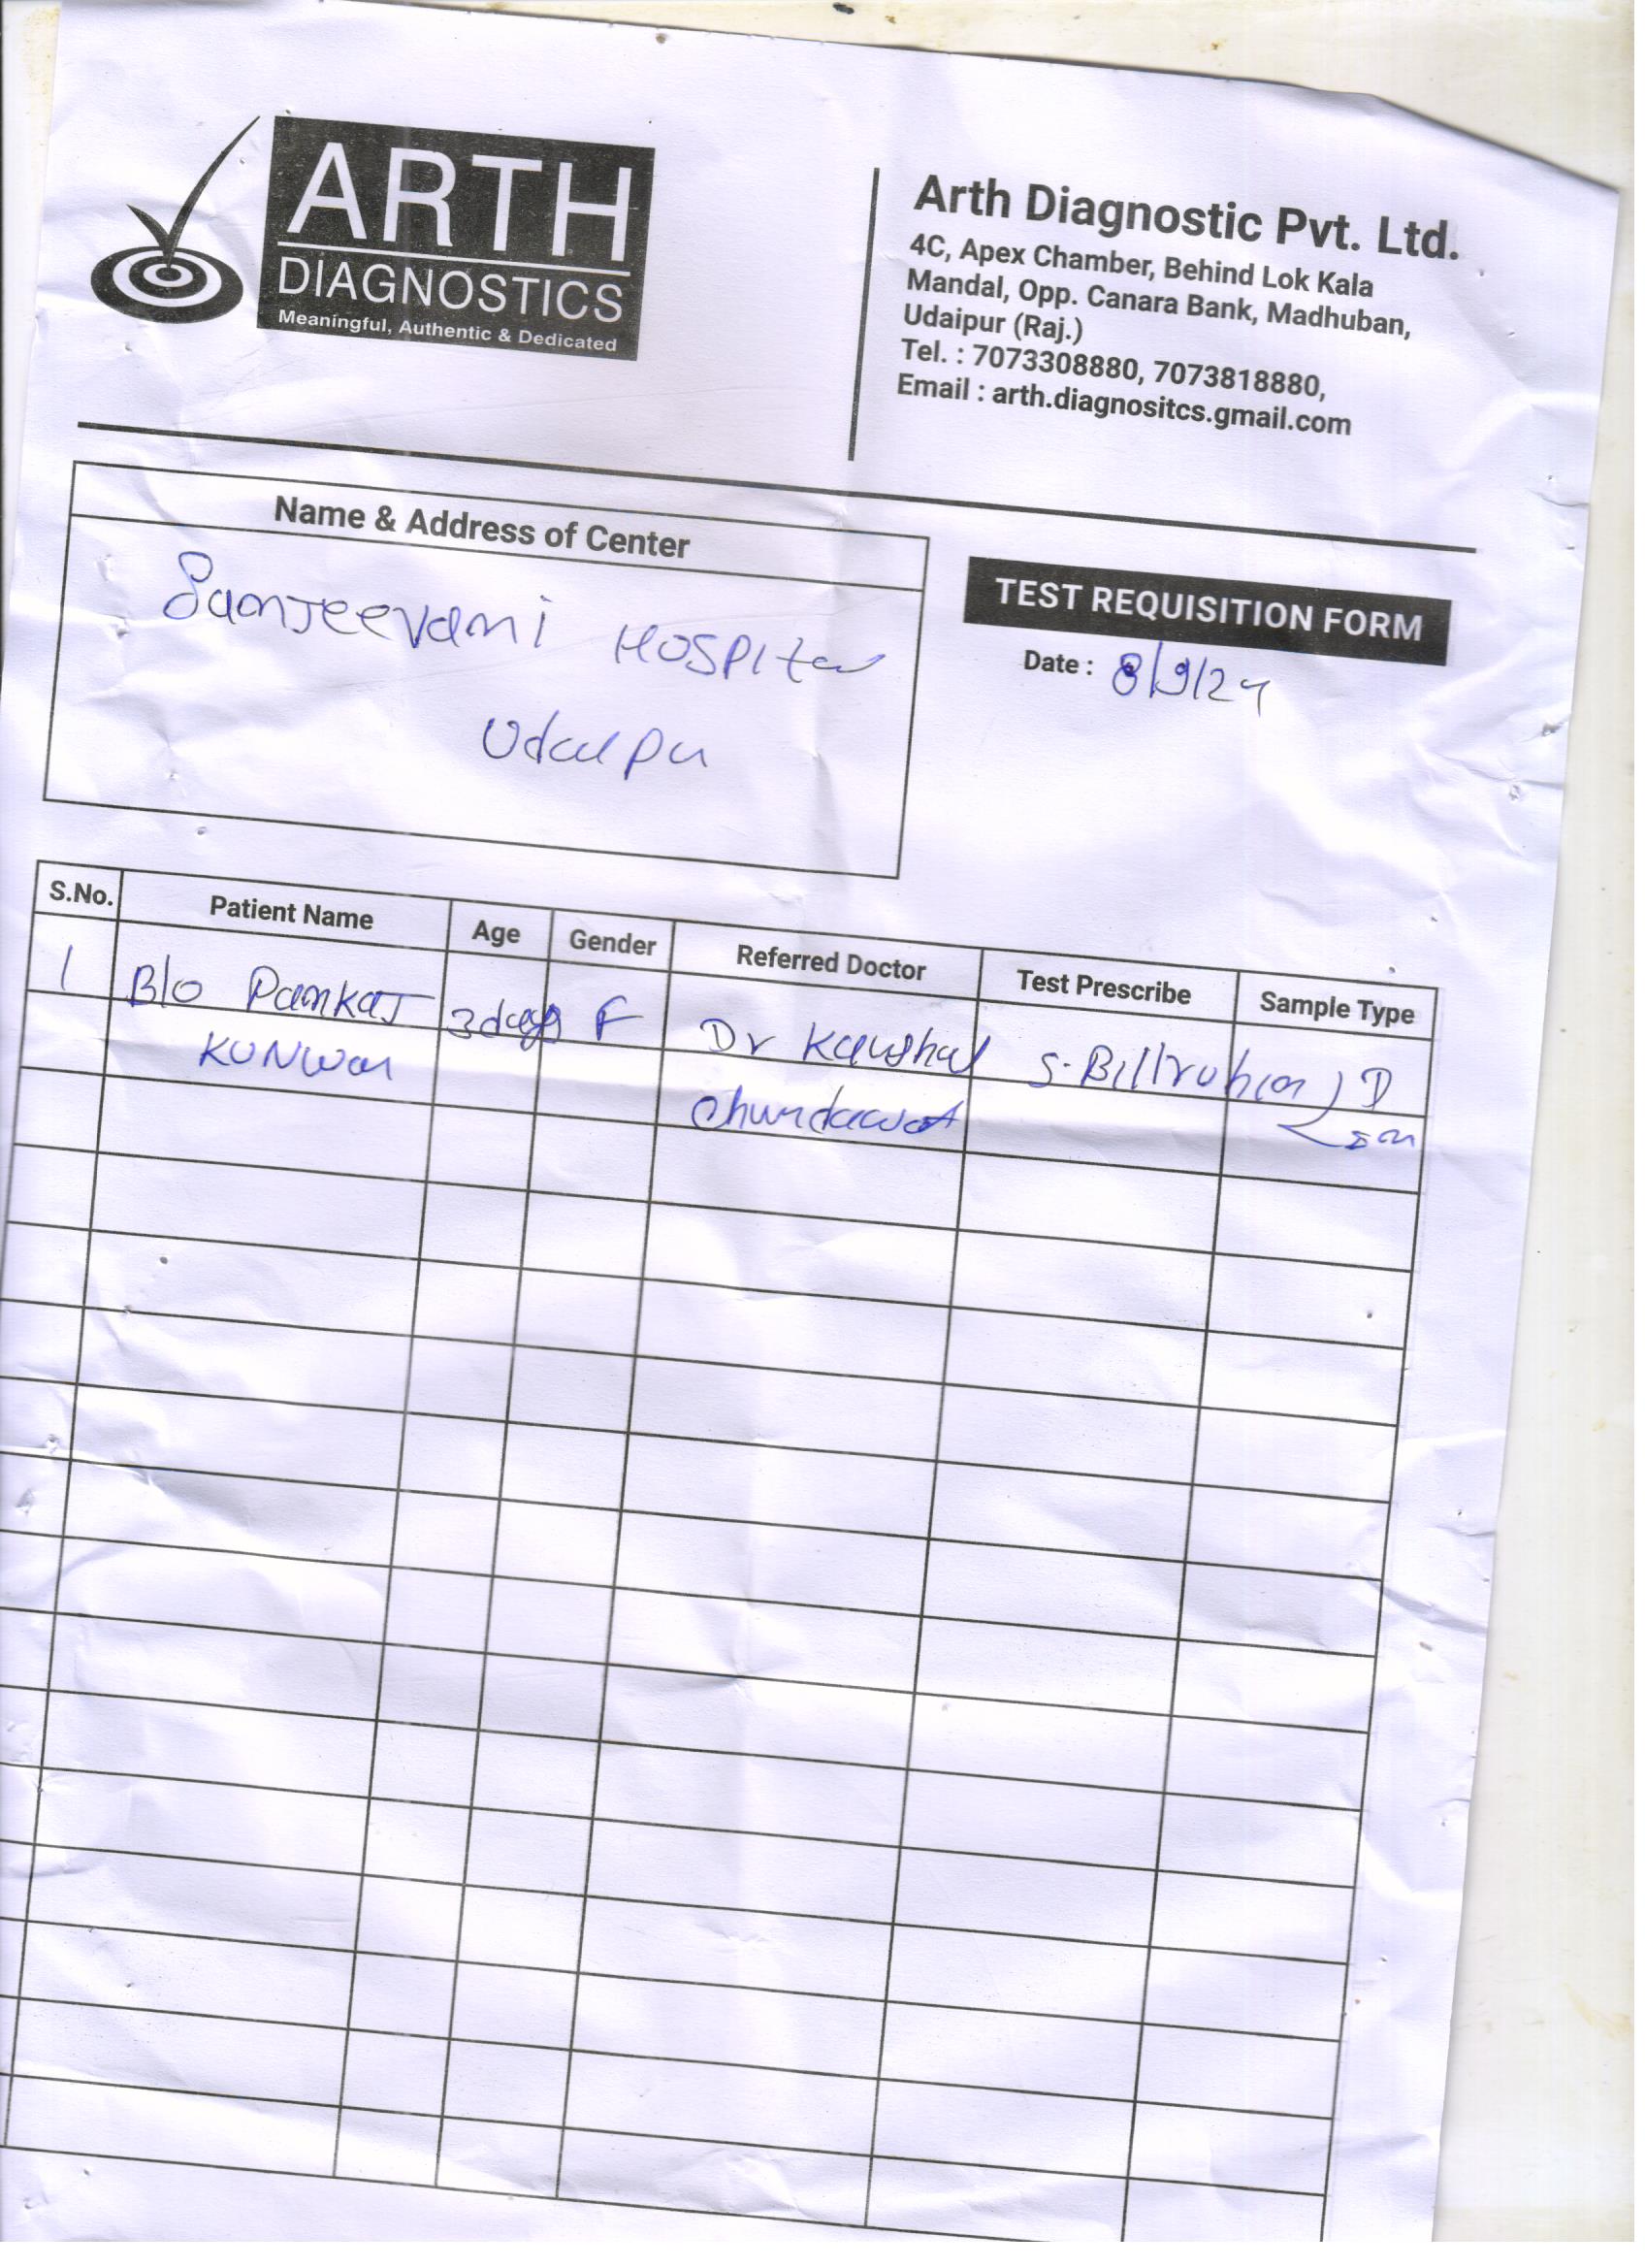 ARTH
DIAGNOSTICS
Meaningful, Authentic & Dedicated
Arth Diagnostic Pvt. Ltd.
4C, Apex Chamber, Behind Lok Kala
Mandal, Opp. Canara Bank, Madhuban,
Udaipur (Raj.)
Tel. : 7073308880, 7073818880,
Email : arth.diagnositcs.gmail.com
Name & Address of Center
Sanjeevani Hospital
Udaipur
TEST REQUISITION FORM
Date : 8/9/24
S.No. Patient Name Age Gender Referred Doctor Test Prescribe Sample Type
1 B/o Pankaj 3days F Dr Kaushal S. Billrubin
Kunwar Chundawat